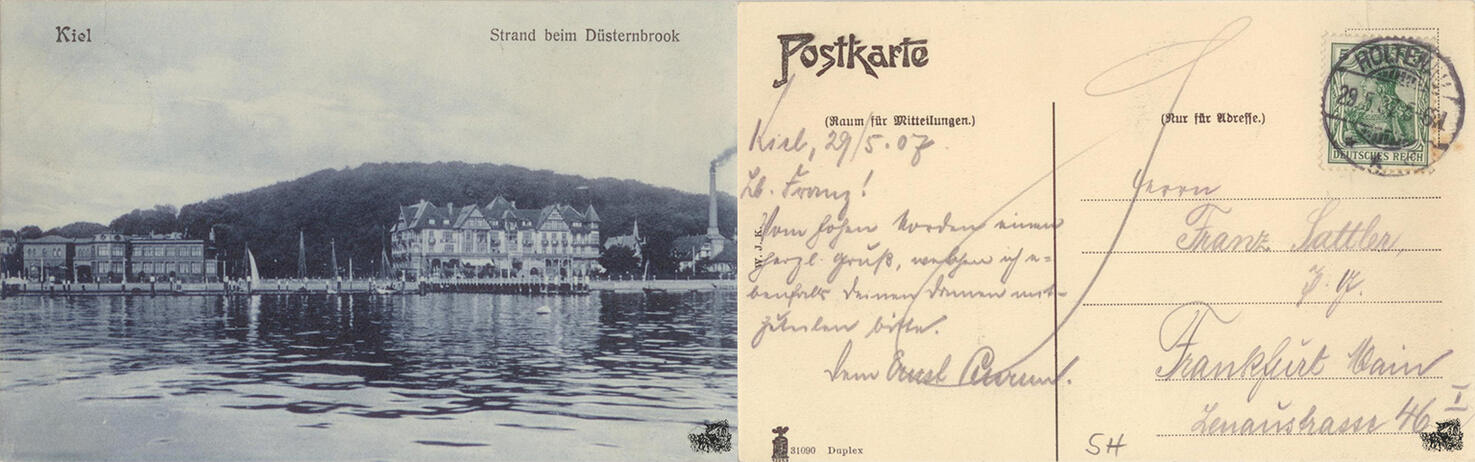 Kiel
Strand beim Düsternbrook
Postkarte
(Raum für Mitteilungen.)
(Nur für Adresse.)
DEUTSCHES REICH
HOLTEN
29.5
Kiel, 29/5.07.
Lb. Franz!
Vom hohen Norden einen
herzl. Gruß, welchen ich e-
benfalls deinen Damen mit-
zuteilen bitte.
Dein Ernst
Herrn
Franz Sattler,
Frankfurt Main
Lenaustrasse 46 I
W. J. K.
31090 Duplex
SH